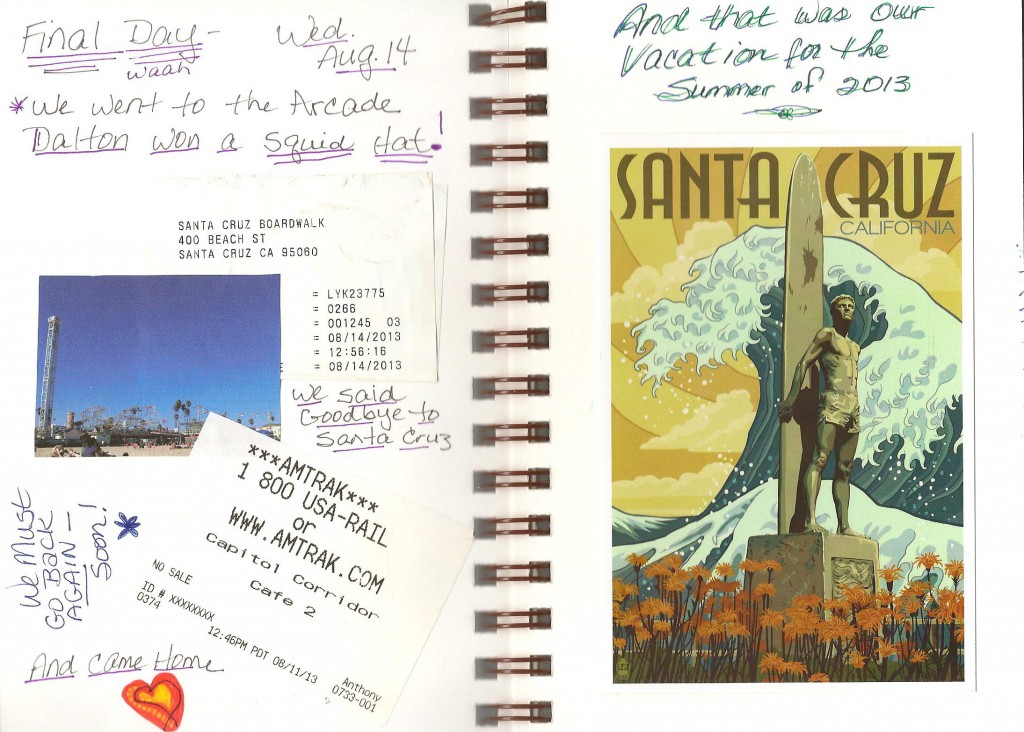 Final Day - Wed.
waah Aug. 14
*We went to the Arcade
Dalton won a Squid Hat!
SANTA CRUZ BOARDWALK
400 BEACH ST
SANTA CRUZ CA 95060
= LYK23775
= 0266
= 001245 03
= 08/14/2013
= 12:56:16
E = 08/14/2013
We said
Goodbye to
Santa Cruz
***AMTRAK***
1 800 USA-RAIL
or
WWW.AMTRAK.COM
Capitol Corridor
Cafe 2
NO SALE
ID # XXXXXXXX
0374
12:46PM PDT 08/11/13
Anthony
0733-001
We Must
GO BACK
AGAIN -
Soon!
And came Home
And that was our
Vacation for the
Summer of 2013
SANTA CRUZ
CALIFORNIA